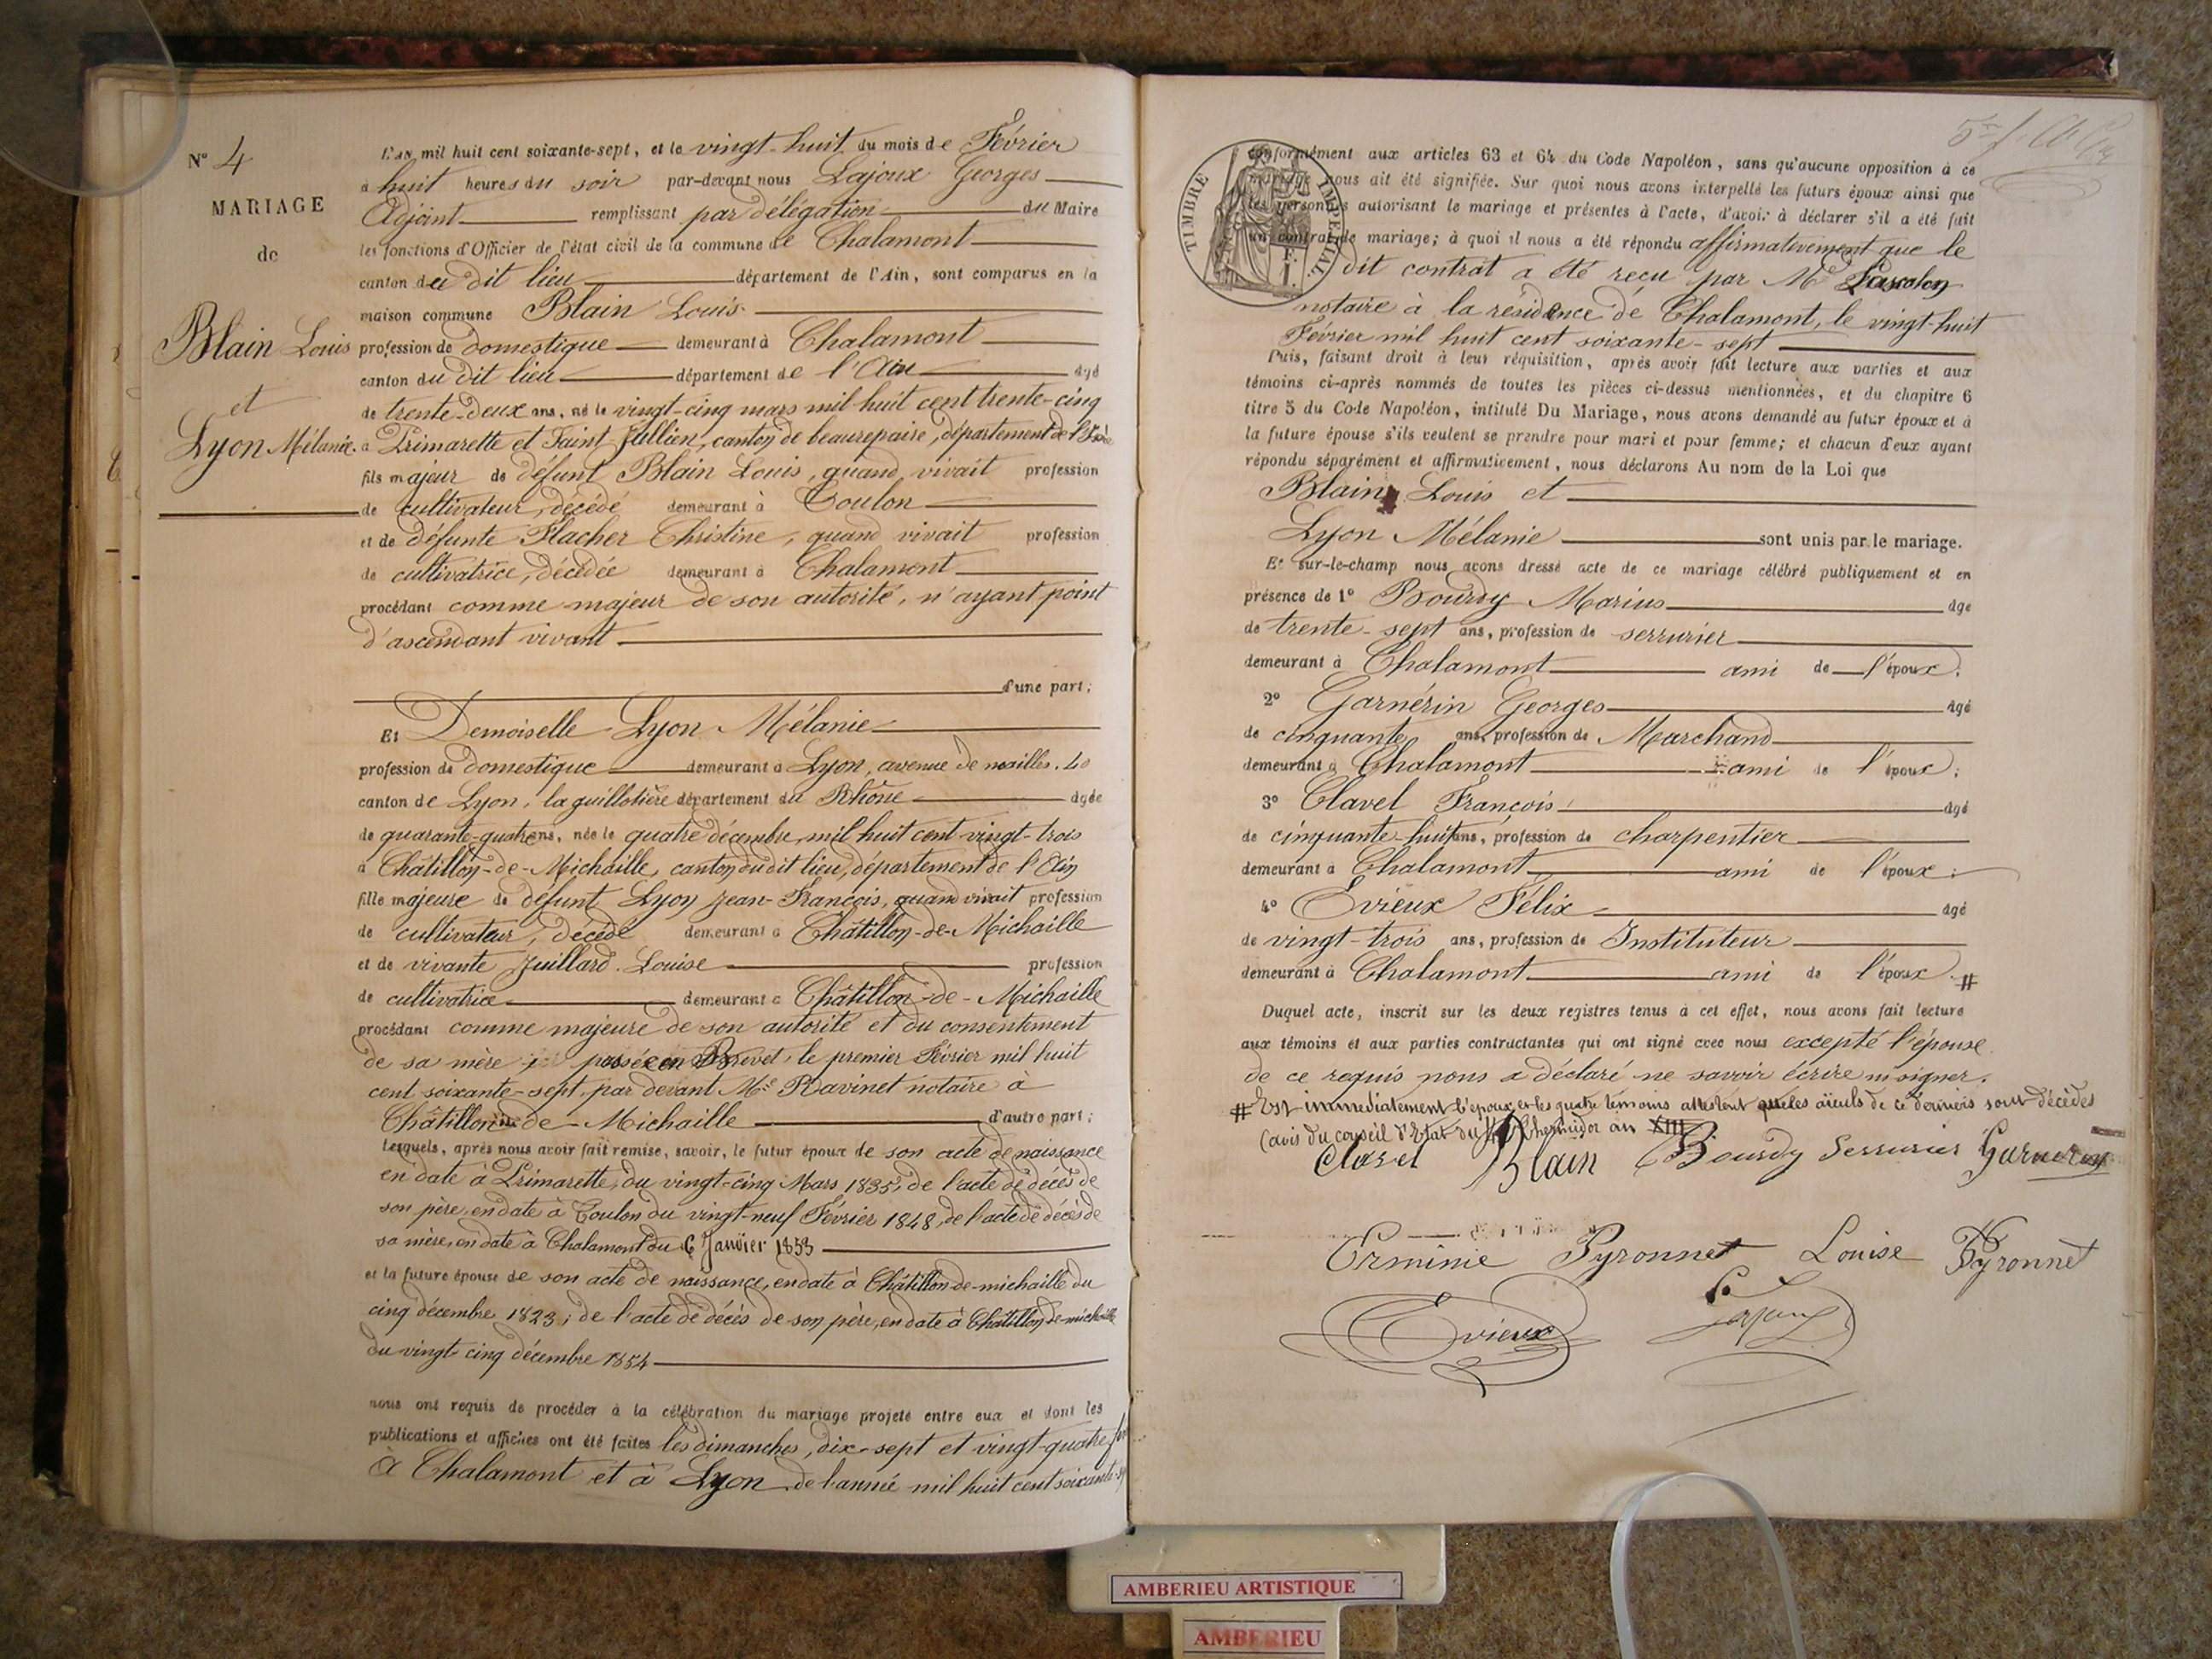 N° 4
MARIAGE
de
Blain Louis
et
Lyon Mélanie.
L'an mil huit cent soixante-sept, et le vingt-huit du mois de Février
à huit heures du soir par-devant nous Lajoux Georges
Adjoint remplissant par délégation du Maire
les fonctions d'Officier de l'état civil de la commune de Chalamont
canton du dit lieu département de l'Ain, sont comparus en la
maison commune Blain Louis
profession de domestique demeurant à Chalamont
canton du dit lieu département de l'Ain âgé
de trente-deux ans, né le vingt-cinq mars mil huit cent trente-cinq
à Primarette et Saint Jullien, canton de beaurepaire, département de l'Isère
fils majeur de défunt Blain Louis, quand vivait profession
de cultivateur, décédé demeurant à Toulon
et de défunte Flacher Christine, quand vivait profession
de cultivatrice, décédée demeurant à Chalamont
procédant comme majeur de son autorité, n'ayant point
d'ascendant vivant
d'une part;
Et Demoiselle Lyon Mélanie
profession de domestique demeurant à Lyon, avenue de noailles. 40
canton de Lyon, la guillotière département du Rhône âgée
de quarante-quatre ans, née le quatre décembre mil huit cent vingt-trois
à Châtillon-de-Michaille, canton du dit lieu, département de l'Ain
fille majeure de défunt Lyon Jean-François, quand vivait profession
de cultivateur, décédé demeurant à Châtillon-de-Michaille
et de vivante Juillard Louise profession
de cultivatrice demeurant à Châtillon-de-Michaille
procédant comme majeure de son autorité et du consentement
de sa mère passée en Brevet, le premier Février mil huit
cent soixante-sept, par devant Me Ravinet notaire à
Châtillon-de-Michaille d'autre part;
Lesquels, après nous avoir fait remise, savoir, le futur époux de son acte de naissance
en date à Primarette, du vingt-cinq Mars 1835, de l'acte de décès de
son père, en date à Toulon du vingt-neuf Février 1848, de l'acte de décès de
sa mère, en date à Chalamont du 6 Janvier 1853
et la future épouse de son acte de naissance, en date à Châtillon-de-michaille du
cinq décembre 1823; de l'acte de décès de son père, en date à Châtillon-de-michaille
du vingt-cinq décembre 1854
nous ont requis de procéder à la célébration du mariage projeté entre eux et dont les
publications et affiches ont été faites les dimanches, dix-sept et vingt-quatre fév
à Chalamont et à Lyon de l'année mil huit cent soixante-sep
TIMBRE IMPERIAL
conformément aux articles 63 et 64 du Code Napoléon, sans qu'aucune opposition à ce
mariage nous ait été signifiée. Sur quoi nous avons interpellé les futurs époux ainsi que
les personnes autorisant le mariage et présentes à l'acte, d'avoir à déclarer s'il a été fait
un contrat de mariage; à quoi il nous a été répondu affirmativement que le
dit contrat a été reçu par Me Lascolon
notaire à la résidence de Chalamont, le vingt-huit
Février mil huit cent soixante-sept
Puis, faisant droit à leur réquisition, après avoir fait lecture aux parties et aux
témoins ci-après nommés de toutes les pièces ci-dessus mentionnées, et du chapitre 6
titre 5 du Code Napoléon, intitulé Du Mariage, nous avons demandé au futur époux et à
la future épouse s'ils veulent se prendre pour mari et pour femme; et chacun d'eux ayant
répondu séparément et affirmativement, nous déclarons Au nom de la Loi que
Blain Louis et
Lyon Mélanie sont unis par le mariage.
Et sur-le-champ nous avons dressé acte de ce mariage célébré publiquement et en
présence de 1° Bourdy Marius âgé
de trente-sept ans, profession de serrurier
demeurant à Chalamont ami de l'époux.
2° Garnérin Georges âgé
de cinquante ans, profession de Marchand
demeurant à Chalamont ami de l'époux;
3° Clavel François âgé
de cinquante-huit ans, profession de charpentier
demeurant à Chalamont ami de l'époux;
4° Evieux Félix âgé
de vingt-trois ans, profession de Instituteur
demeurant à Chalamont ami de l'époux #
Duquel acte, inscrit sur les deux registres tenus à cet effet, nous avons fait lecture
aux témoins et aux parties contractantes qui ont signé avec nous excepté l'épouse
de ce requis nous a déclaré ne savoir écrire ni signer.
# Est immédiatement l'époux et les quatre témoins attestent que les aïeuls de ce derniers sont décédés
(avis du conseil d'Etat du Thermidor an XIII
Clavel Blain Bourdy Serrurier Garnerin
Erminie Pyronnet Louise Pyronnet
Evieux Lajoux
AMBERIEU ARTISTIQUE
AMBERIEU